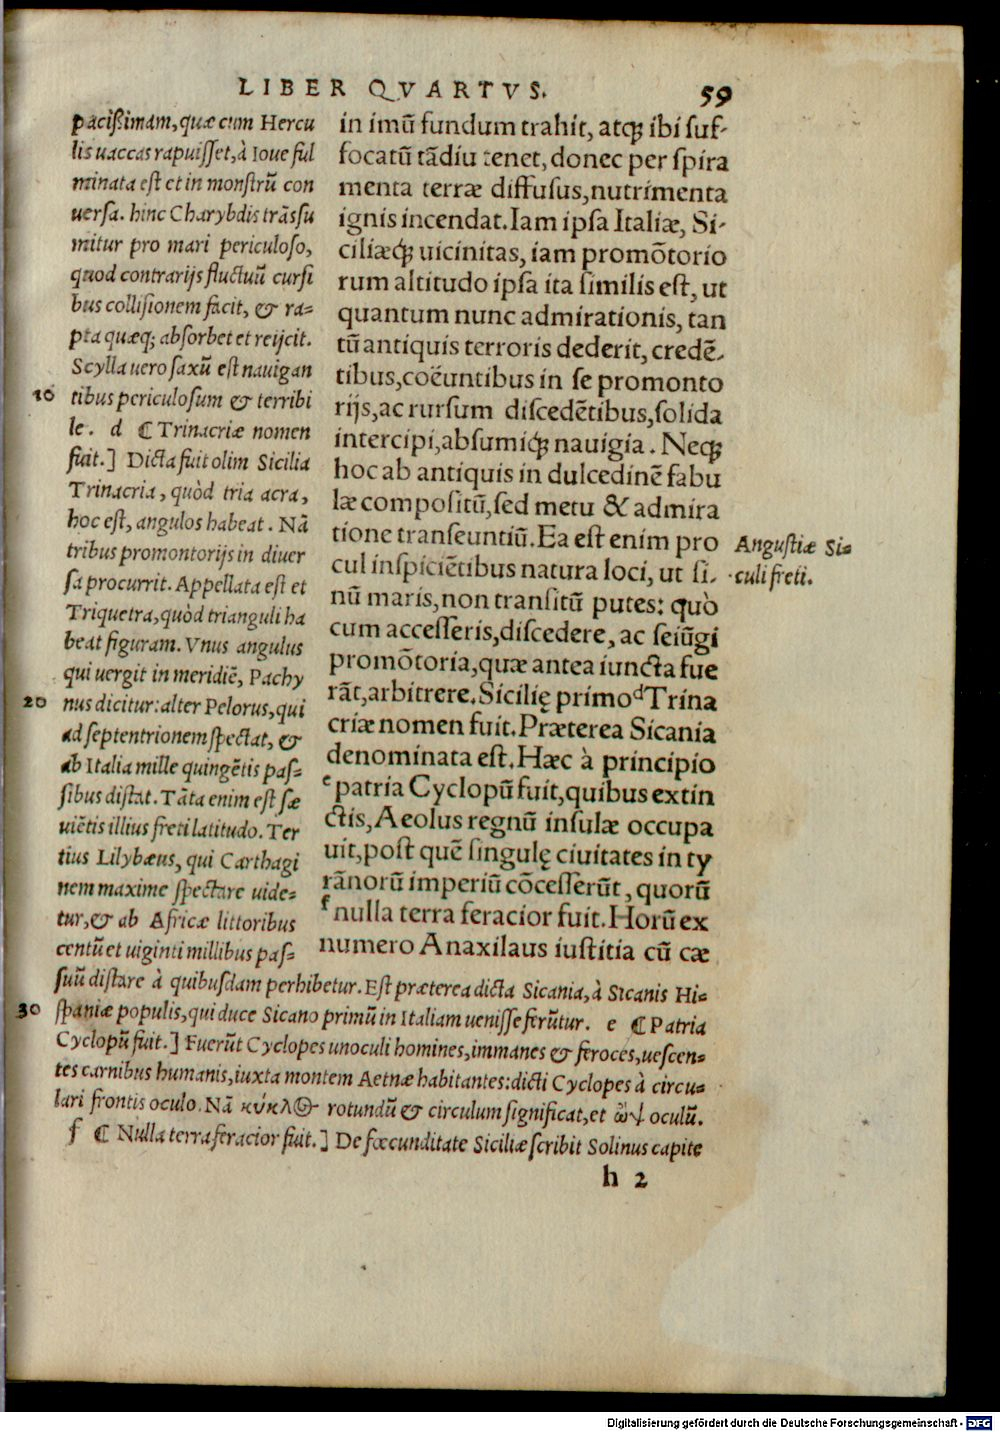 LIBER QVARTVS. 59
pacißimam, quæ cum Hercu
lis uaccas rapuisset, à Ioue ful
minata est et in monstrũ con
uersa. hinc Charybdis trãssu
mitur pro mari periculoso,
quod contrarijs fluctuũ cursi
bus collisionem facit, & ra=
pta quæq; absorbet et reijcit.
Scylla uero saxũ est nauigan
10 tibus periculosum & terribi
le. d ⁋ Trinacriæ nomen
fuit.] Dicta fuit olim Sicilia
Trinacria, quòd tria acra,
hoc est, angulos habeat. Nã
tribus promontorijs in diuer
sa procurrit. Appellata est et
Triquetra, quòd trianguli ha
beat figuram. Vnus angulus
qui uergit in meridiẽ, Pachy
20 nus dicitur: alter Pelorus, qui
ad septentrionem spectat, &
ab Italia mille quingẽtis pas=
sibus distat. Tãta enim est sæ
uiẽtis illius freti latitudo. Ter
tius Lilybæus, qui Carthagi
nem maxime spectare uide=
tur, & ab Africæ littoribus
centũ et uiginti millibus pas=
suũ distare à quibusdam perhibetur. Est præterea dicta Sicania, à Sicanis Hi=
30 spaniæ populis, qui duce Sicano primũ in Italiam uenisse ferũtur. e ⁋ Patria
Cyclopũ fuit.] Fuerũt Cyclopes unoculi homines, immanes & feroces, uescen=
tes carnibus humanis, iuxta montem Aetnæ habitantes: dicti Cyclopes à circu=
lari frontis oculo. Nã κύκλος rotundũ & circulum significat, et ὤψ oculũ.
f ⁋ Nulla terra feracior fuit.] De fœcunditate Siciliæ scribit Solinus capite
in imũ fundum trahit, atq; ibi suf-
focatũ tãdiu tenet, donec per spira
menta terræ diffusus, nutrimenta
ignis incendat. Iam ipsa Italiæ, Si-
ciliæq; uicinitas, iam promõtorio
rum altitudo ipsa ita similis est, ut
quantum nunc admirationis, tan
tũ antiquis terroris dederit, credẽ-
tibus, coëuntibus in se promonto
rijs, ac rursum discedẽtibus, solida
intercipi, absumiq; nauigia. Neq;
hoc ab antiquis in dulcedinẽ fabu
læ compositũ, sed metu & admira
tione transeuntiũ. Ea est enim pro
cul inspiciẽtibus natura loci, ut si-
nũ maris, non transitũ putes: quò
cum accesseris, discedere, ac seiũgi
promõtoria, quæ antea iuncta fue
rãt, arbitrere. Sicilię primo d Trina
criæ nomen fuit. Præterea Sicania
denominata est. Hæc à principio
e patria Cyclopũ fuit, quibus extin
ctis, Aeolus regnũ insulæ occupa
uit, post quẽ singulę ciuitates in ty
rãnorũ imperiũ cõcesserũt, quorũ
f nulla terra feracior fuit. Horũ ex
numero Anaxilaus iustitia cũ cæ
Angustiæ Si=
culi freti.
h 2
Digitalisierung gefördert durch die Deutsche Forschungsgemeinschaft - DFG